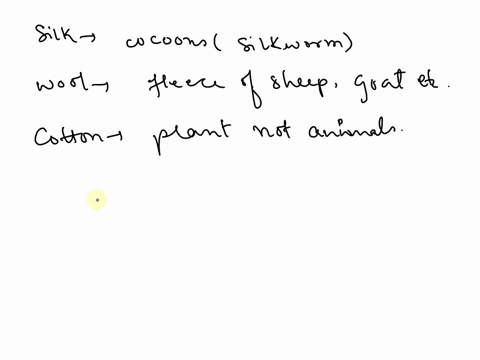 Silk → cocoons ( silkworm)
wool → fleece of sheep, goat etc.
Cotton → plant not animals.